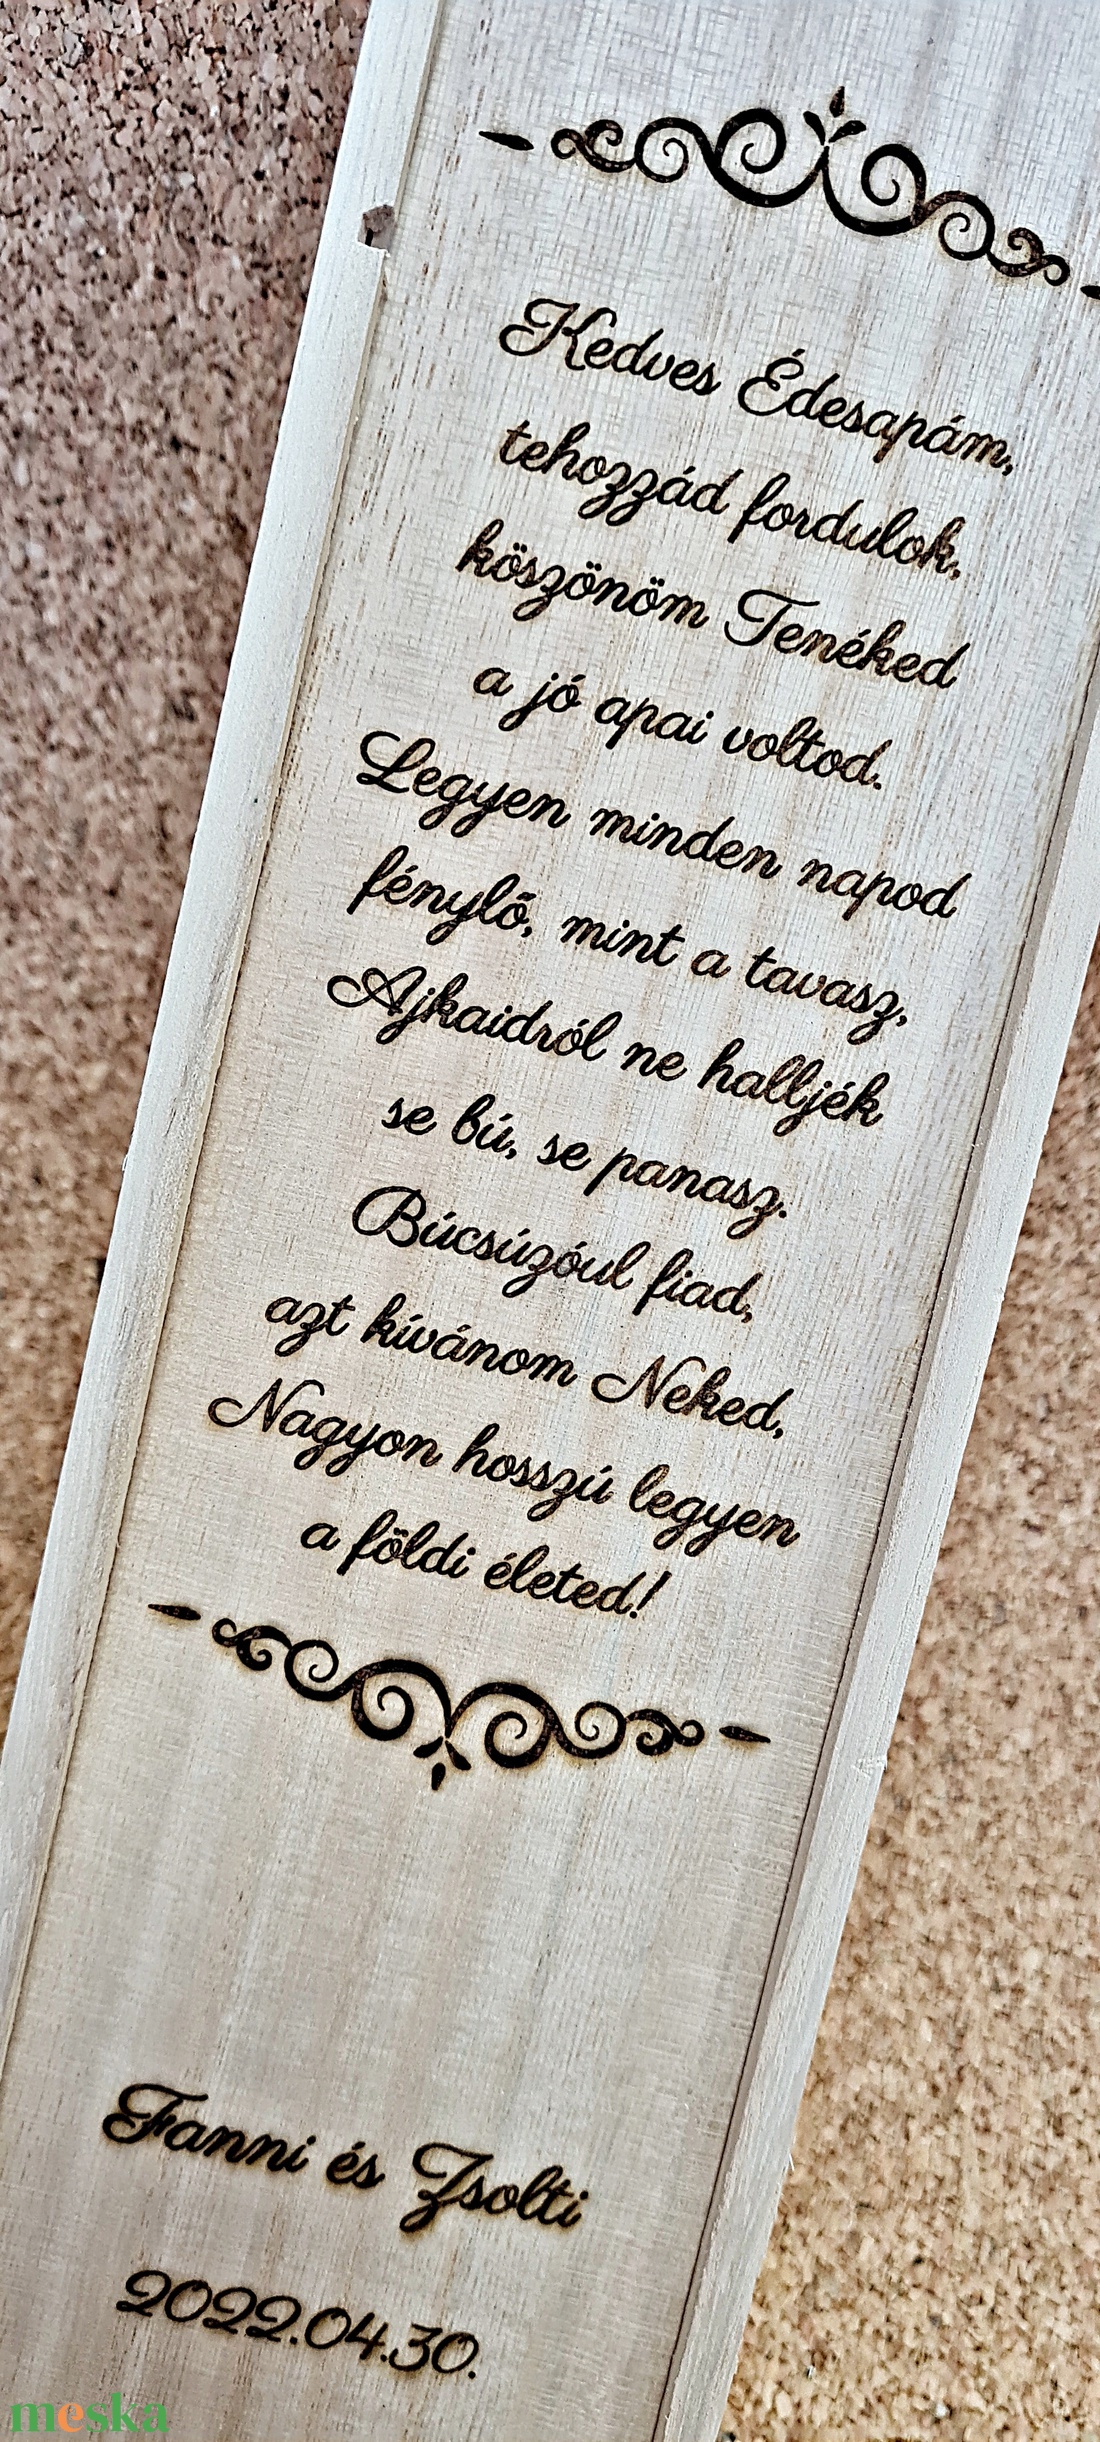 Kedves Édesapám,
tehozzád fordulok,
köszönöm Tenéked
a jó apai voltod.
Legyen minden napod
fénylő, mint a tavasz,
Ajkaidról ne halljék
se bú, se panasz.
Búcsúzóul fiad,
azt kívánom Neked,
Nagyon hosszú legyen
a földi életed!
Fanni és Zsolti
2022.04.30.
meska